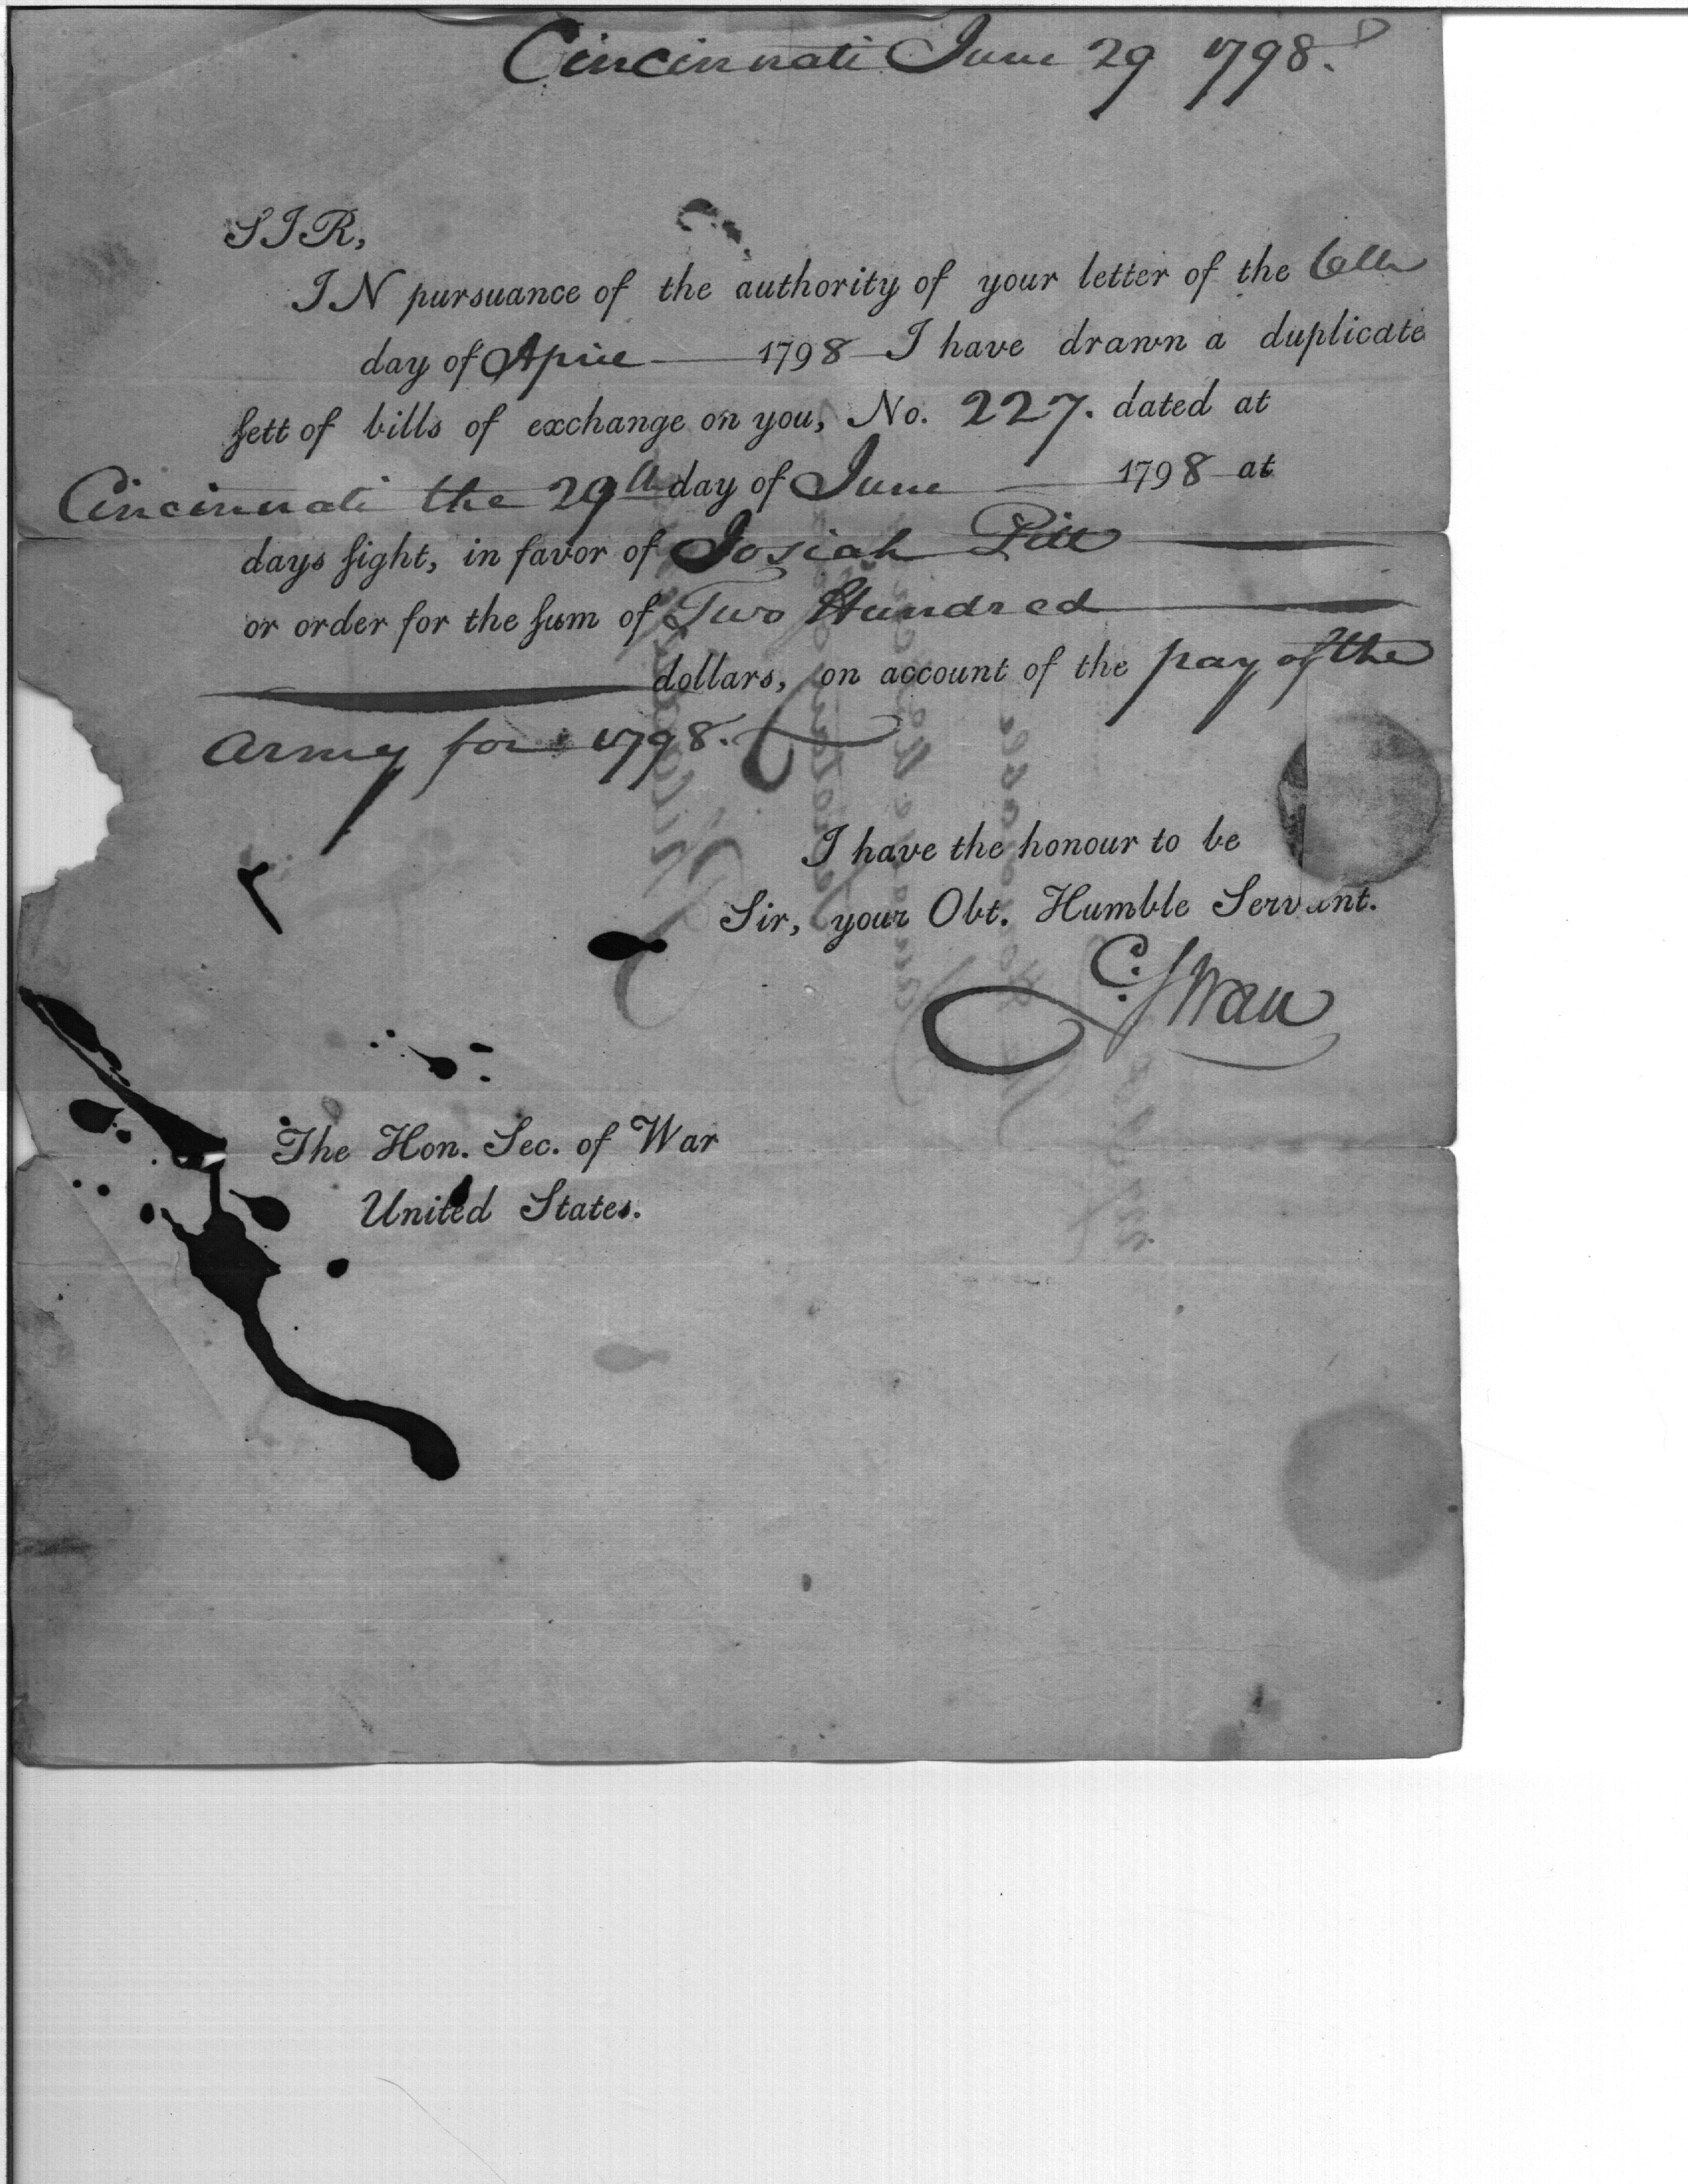 Cincinnati June 29 1798.
SIR,
IN pursuance of the authority of your letter of the 6th
day of April 1798 I have drawn a duplicate
sett of bills of exchange on you, No. 227. dated at
Cincinnati the 29th day of June 1798 at
days sight, in favor of Josiah Pitt
or order for the sum of Two Hundred
dollars, on account of the pay of the
Army for 1798.
I have the honour to be
Sir, your Obt. Humble Servant.
C. Swan
The Hon. Sec. of War
United States.